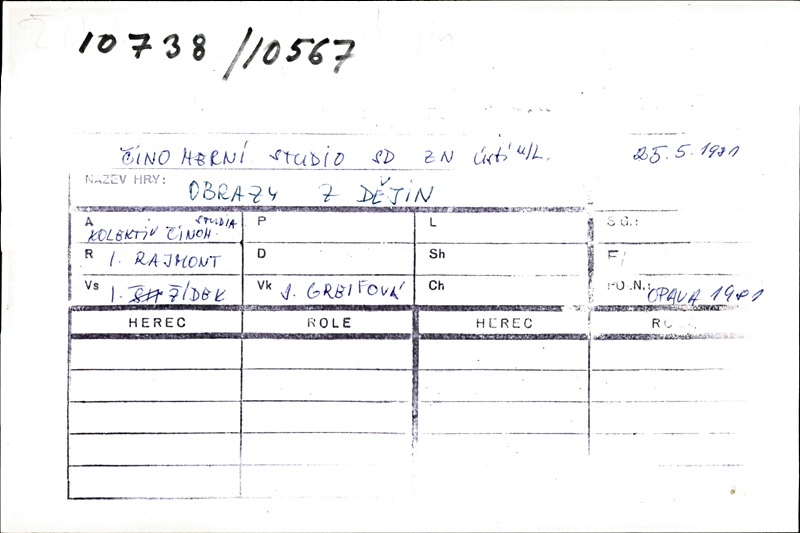 10738/10567
ČINOHERNÍ STUDIO SD ZN Ústí n/L. 25.5.1981
NÁZEV HRY: OBRAZY Z DĚJIN
A KOLEKTIV ČINOH. STUDIA P L SG:
R I. RAJMONT D Sh F/
Vs I. ŽÍDEK Vk J. GREIFOVÁ Ch PO.N.: OPAVA 1981
HEREC ROLE HEREC